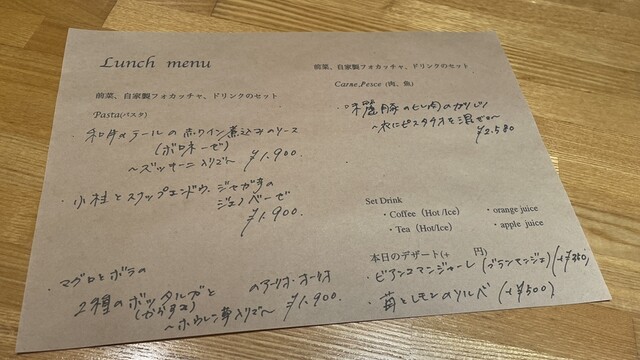 Lunch menu
前菜、自家製フォカッチャ、ドリンクのセット
Pasta(パスタ)
・和牛テールの赤ワイン煮込みのソース
(ボロネーゼ)
〜ズッキーニ入リ〜 ¥1.900
・小柱とスナップエンドウ、ジャガ芋の
ジェノベーゼ
¥1.900.
・マグロとボラの
2種のボッタルガと のアーリオ・オーリオ
(カラスミ) ¥1.900.
〜ホウレン草入リ〜
前菜、自家製フォカッチャ、ドリンクのセット
Carne,Pesce (肉、魚)
・麗豚のヒレ肉の
〜衣にピスタチオを混ぜ〜
¥2.580
Set Drink
・Coffee（Hot /Ice）
・orange juice
・Tea（Hot/Ice）
・apple juice
本日のデザート(+ 円)
・ビアンコマンジャーレ (ブランマンジェ)
・苺とレモンのソルベ (+¥500)